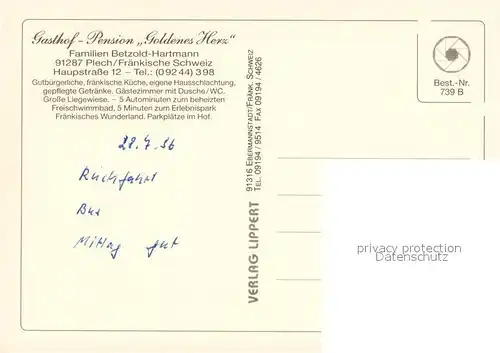 Gasthof - Pension „Goldenes Herz"
Familien Betzold-Hartmann
91287 Plech/Fränkische Schweiz
Hauptstraße 12 – Tel.: (09244) 398
Gutbürgerliche, fränkische Küche, eigene Hausschlachtung,
gepflegte Getränke. Gästezimmer mit Dusche/WC.
Große Liegewiese. – 5 Autominuten zum beheizten
Freischwimmbad, 5 Minuten zum Erlebnispark
Fränkisches Wunderland. Parkplätze im Hof.
28.7.96
Rückfahrt
Bus
Mittag gut
VERLAG LIPPERT
91316 EBERMANNSTADT/FRÄNK. SCHWEIZ
TEL. 09194 / 9514 FAX 09194 / 4626
Best.-Nr.
739 B
privacy protection
Datenschutz